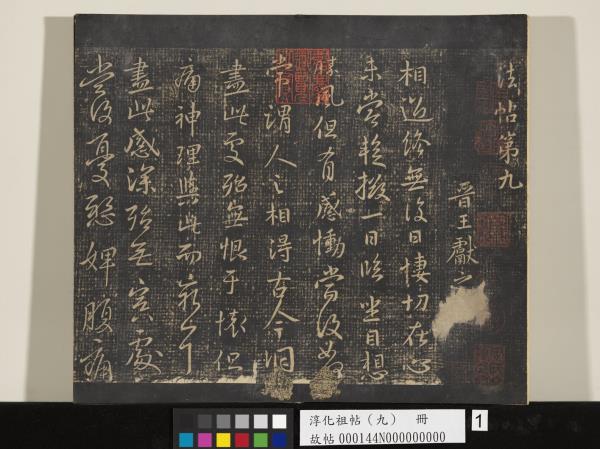 法帖第九
晉王獻之
相過終無復日悽切在心
未嘗暫撥一日臨坐目想
勝風但有感慟當復如何
常謂人之相得古今洞
盡此處殆無恨于懷但
痛神理與此而窮耳
盡此感深殆無寘處
常復憂愁婢腹痛
淳化祖帖（九） 冊
故帖000144N000000000
1